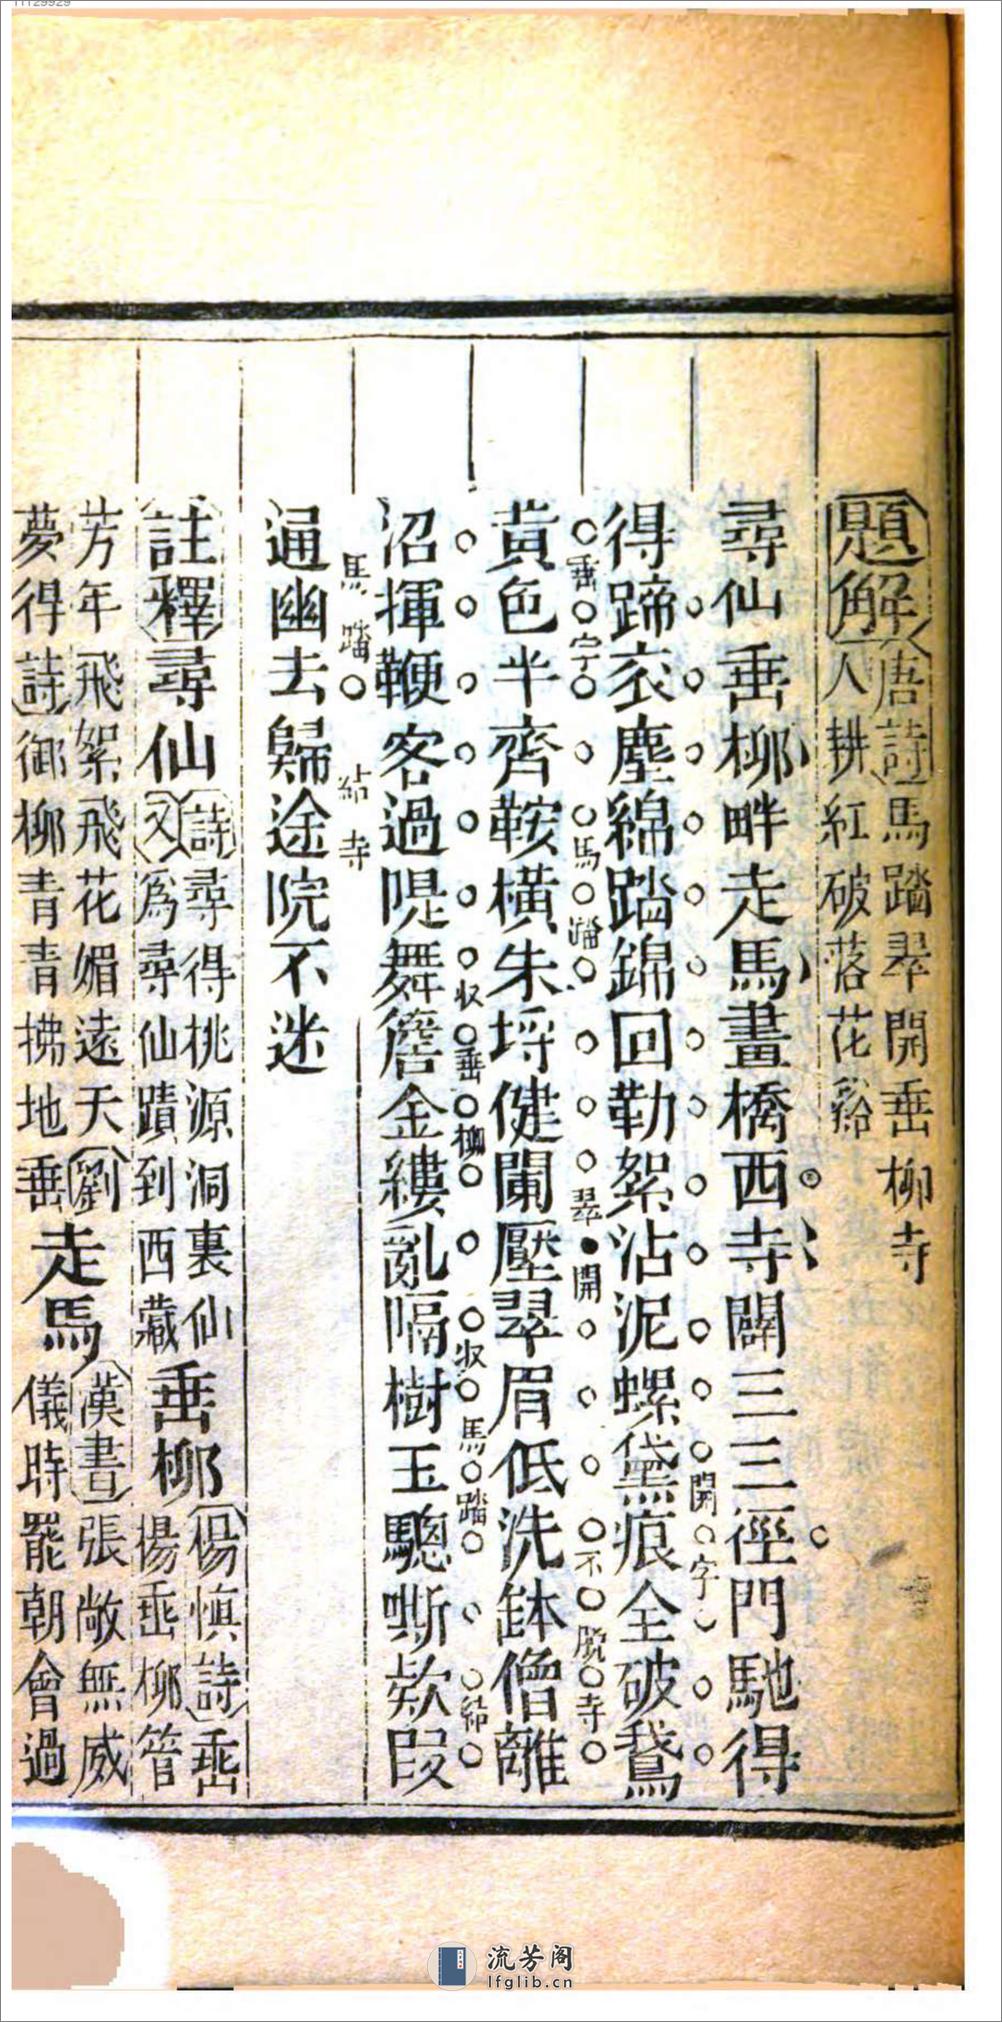 11129929
題解
唐詩馬踏翠開垂柳寺
人耕紅破落花谿
尋仙垂柳畔走馬畫橋西寺闢三三徑門馳得
得蹄衣塵綿踏錦回勒絮沾泥螺黛痕全破鵞
黃色半齊鞍橫朱埒健闌壓翠眉低洗鉢僧離
沼揮鞭客過隄舞簷金縷亂隔樹玉驄嘶欵叚
通幽去歸途院不迷
開字
垂字
馬踏
翠開
不脫寺
收垂柳
收馬踏
結
馬踏
結寺
註釋尋仙
詩尋得桃源洞裏仙
又為尋仙蹟到西藏
垂柳
楊慎詩垂
楊垂柳管
芳年飛絮飛花媚遠天劉
夢得詩御柳青青拂地垂
走馬
漢書張敞無威
儀時罷朝會過
流芳阁
lfglib.cn